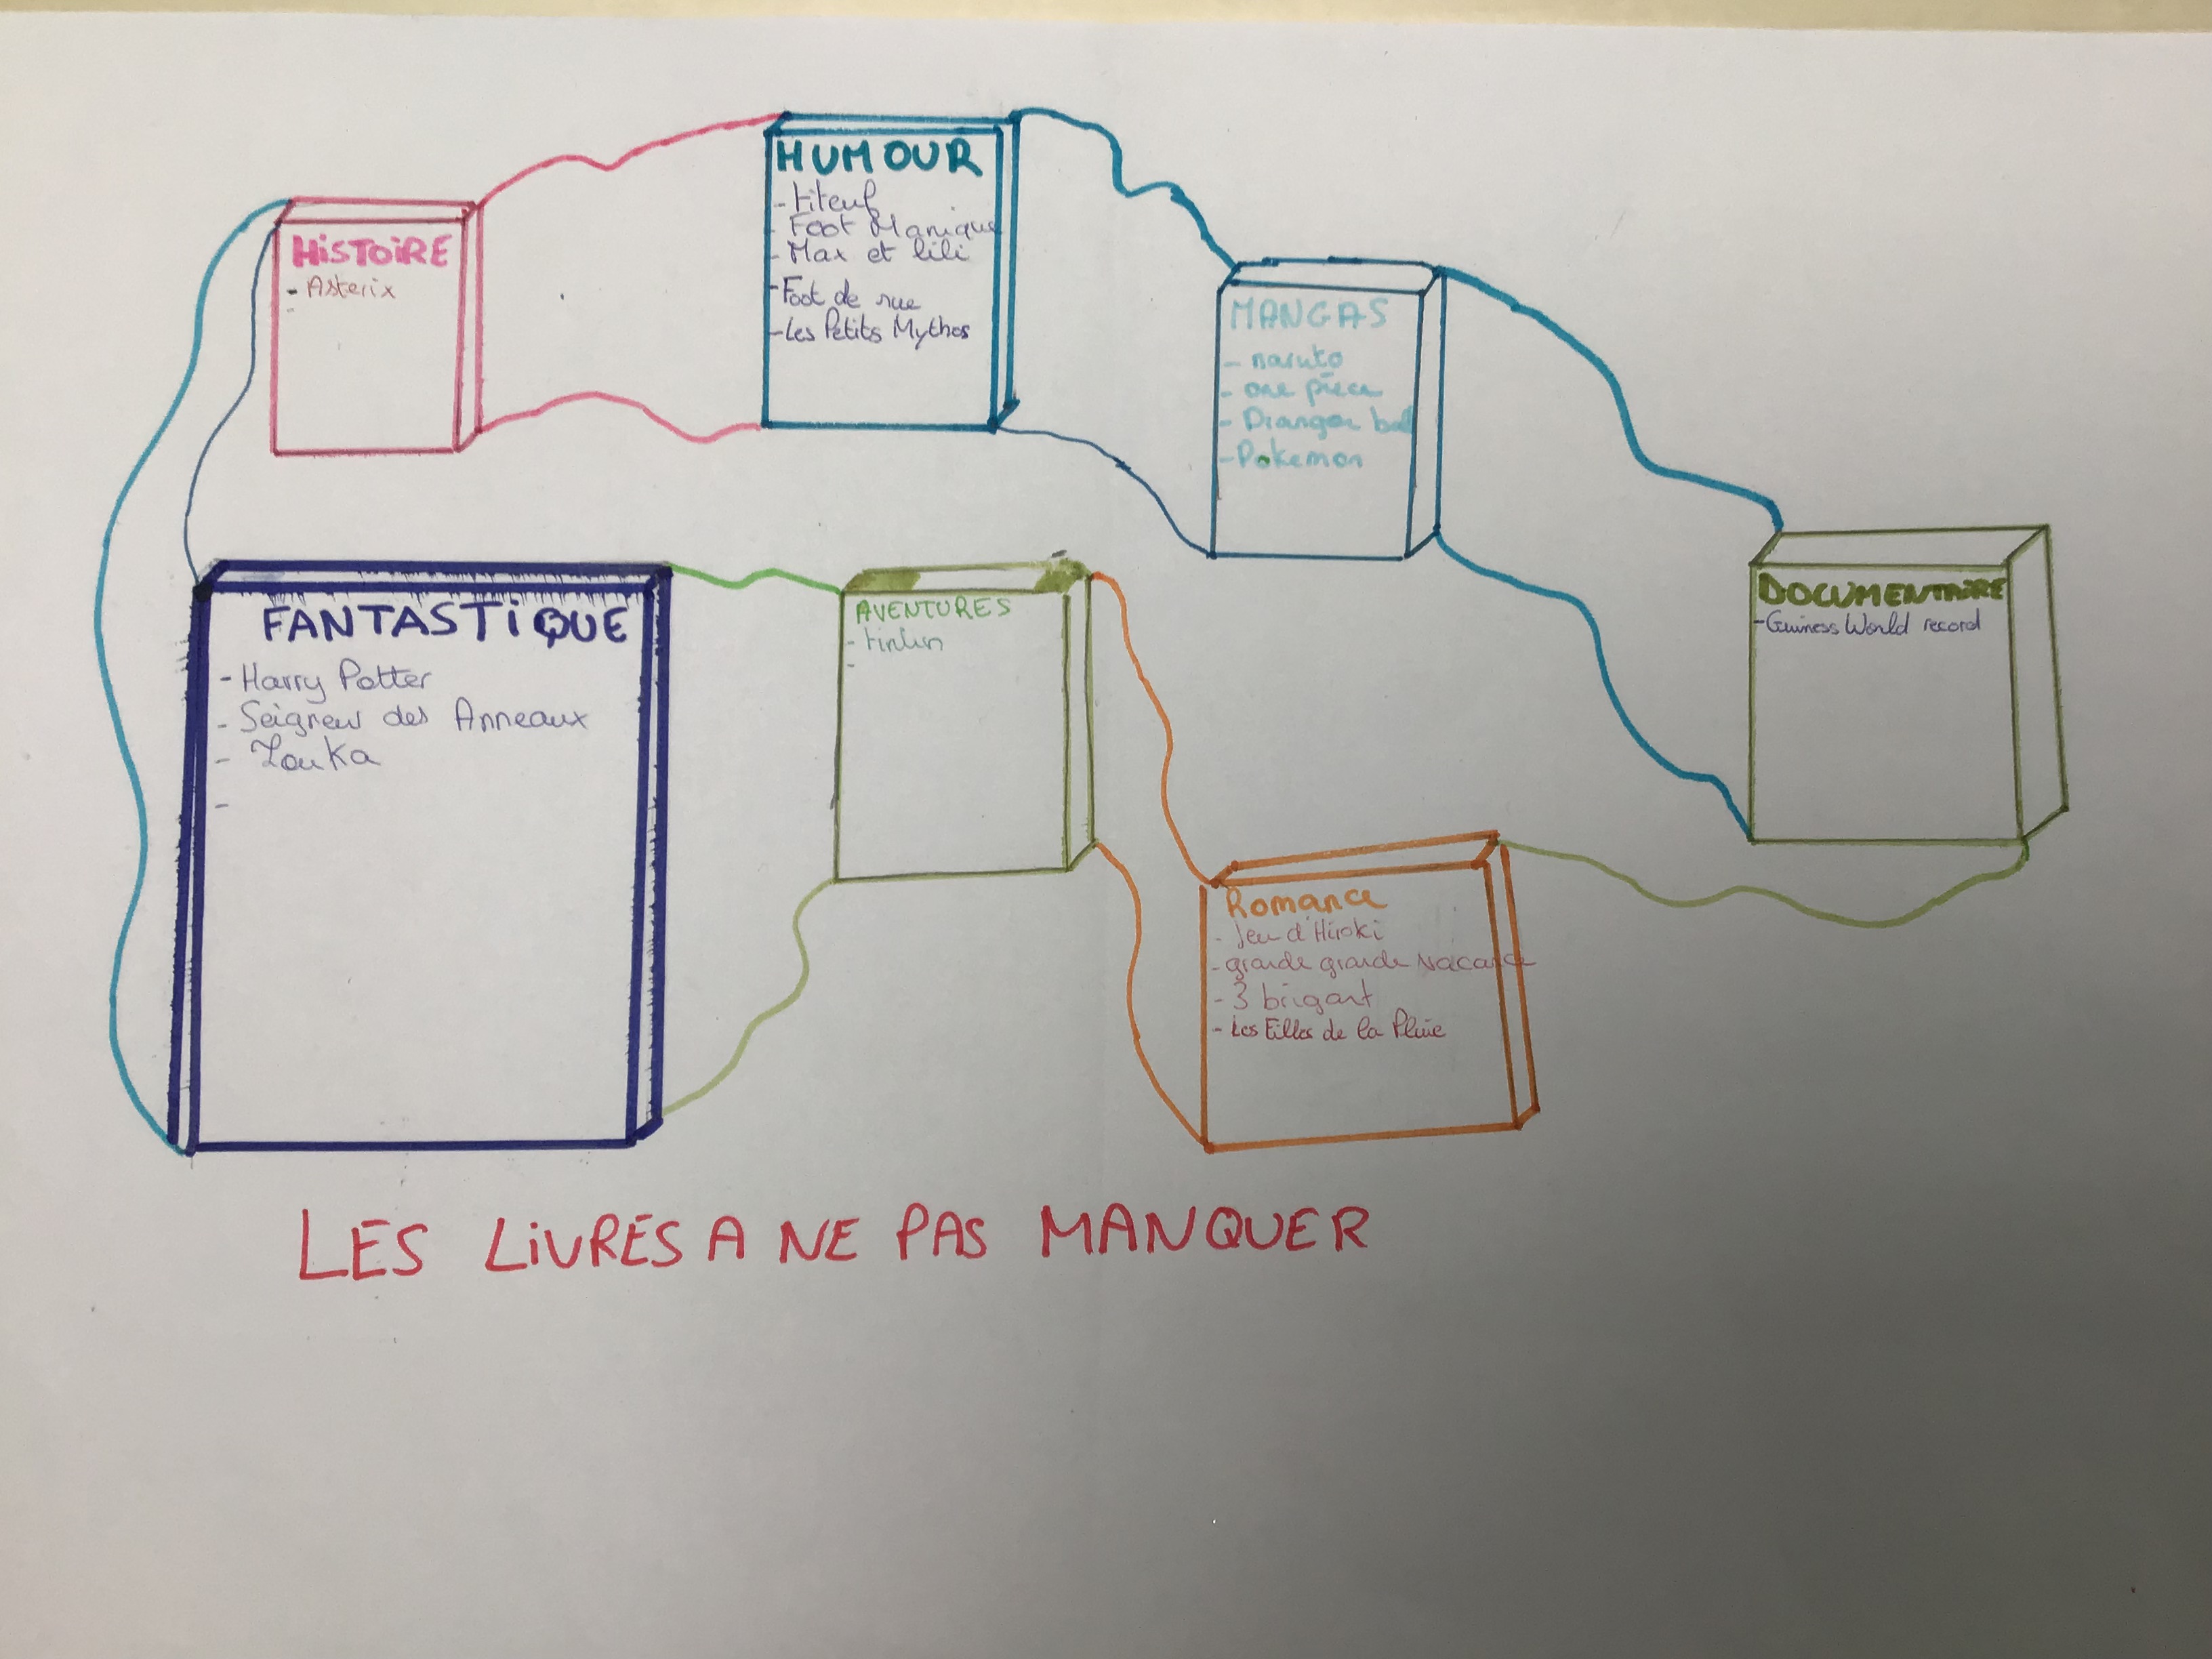 HiSTOiRE
- Asterix
-
HUMOUR
- titeuf
- Foot Manique
- Max et lili
- Foot de rue
- Les Petits Mythos
MANGAS
- naruto
- one pièce
- Drangon ball
- Pokemon
DOCUMENTAIRE
- Guiness World record
FANTASTiQUE
- Harry Potter
- Seigneur des Anneaux
- Zouka
-
AVENTURES
- tintin
-
Romance
- Jeu d'Hiroki
- grande grande vacance
- 3 brigant
- Les Filles de la Pluie
LES LiVRES A NE PAS MANQUER